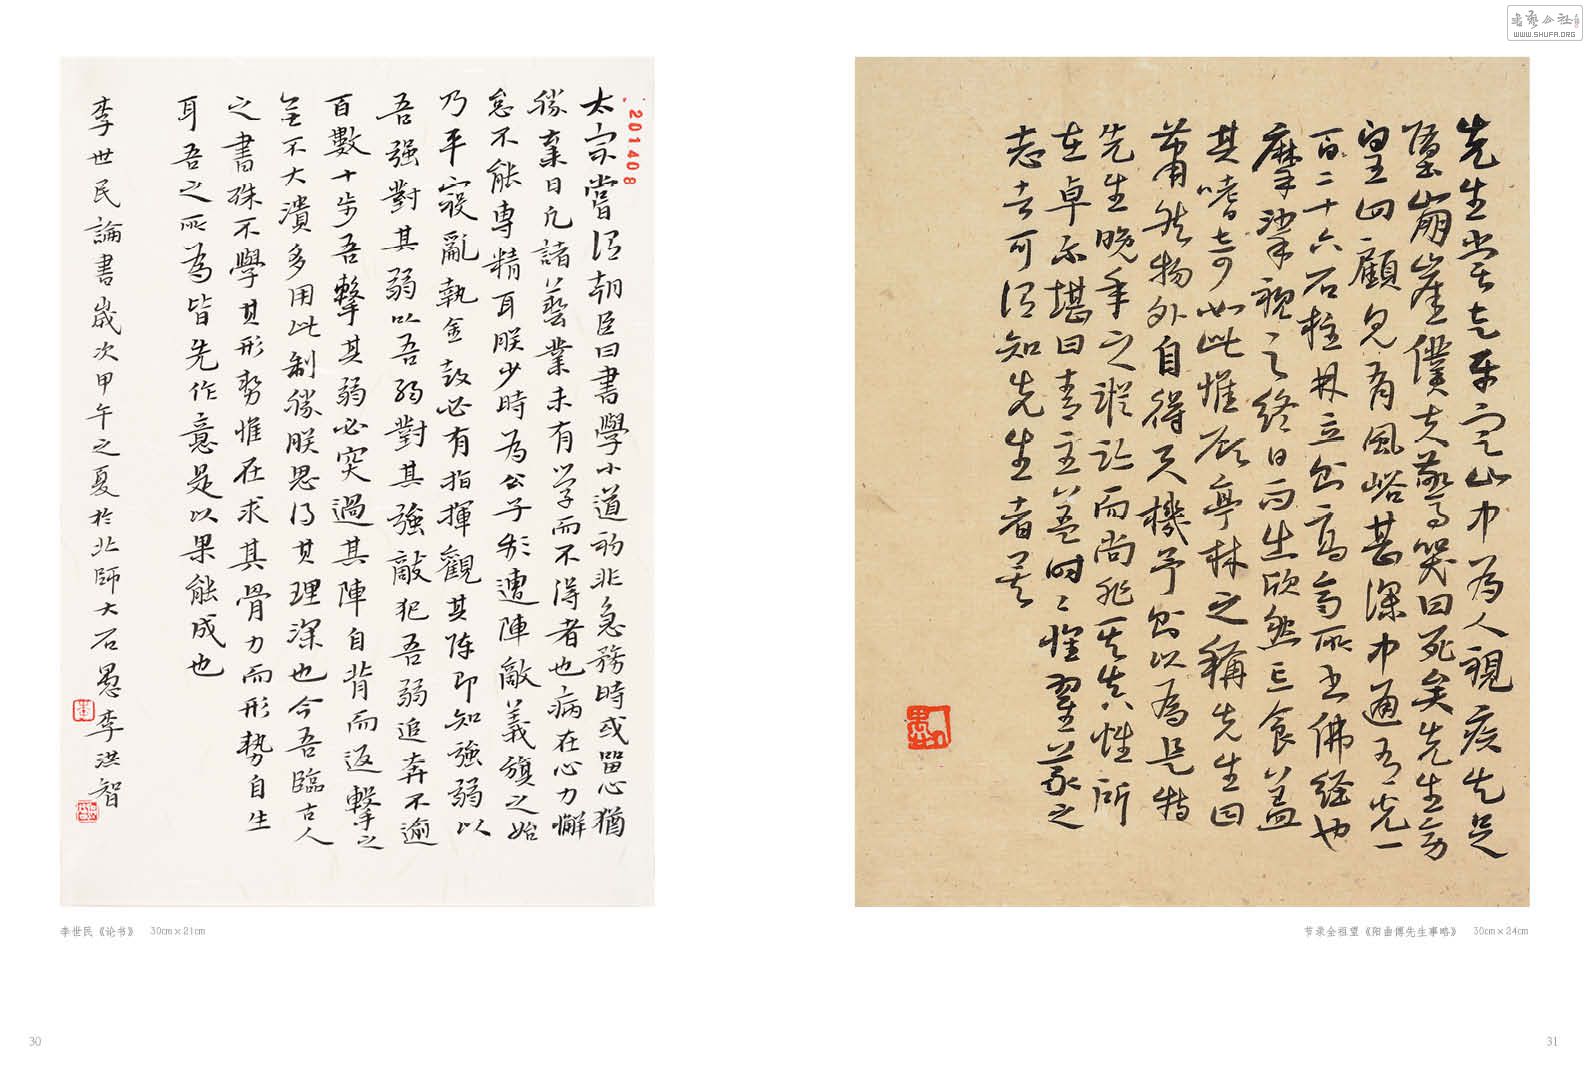 太宗嘗謂朝臣曰書學小道初非急務時或留心猶
勝棄日凡諸藝業未有學而不得者也病在心力懈
怠不能專精耳朕少時為公子頻遭陣敵義旗之始
乃平寇亂執金鼓必有指揮觀其陣即知強弱以
吾強對其弱以吾弱對其強敵犯吾弱追奔不逾
百數十步吾擊其弱必突過其陣自背而返擊之
無不大潰多用此制勝朕思得其理深也今吾臨古人
之書殊不學其形勢惟在求其骨力而形勢自生
耳吾之所為皆先作意是以果能成也
李世民論書歲次甲午之夏於北師大石愚李洪智
201408
李世民《论书》 30cm×21cm
30
先生嘗走平定山中為人視疾失足
墮崩崖僕夫驚哭曰死矣先生旁
皇四顧見有風峪甚深中通天光一
百二十六石柱林立則高齊所書佛經也
摩挲視之終日而出欣然忘食蓋
其嗜奇如此惟顧亭林之稱先生曰
蕭然物外自得天機予則以為是特
先生晚年之蹤跡而尚非其真性所
在卓爾堪曰青主蓋時時懷翟義之
志者可謂知先生者矣
节录全祖望《阳曲傅先生事略》 30cm×24cm
31
书艺公社
WWW.SHUFA.ORG